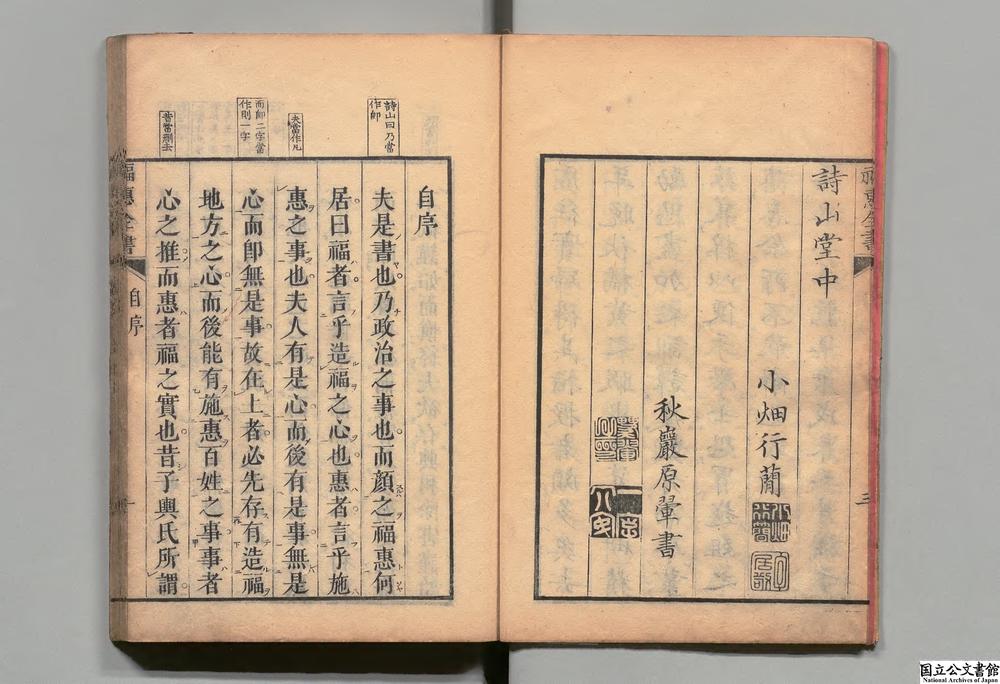 詩山堂中
小畑行蕳
秋巖原翬書
福惠全書
三
詩山曰乃當
作師
夫當作凡
而師二字當
作則一字
昔當刪去
自序
夫是書也乃政治之事也而顔之福惠何
居曰福者言乎造福之心也惠者言乎施
惠之事也夫人有是心而後有是事無是
心而卽無是事故在上者必先存有造福
地方之心而後能有施惠百姓之事事者
心之推而惠者福之實也昔子輿氏所謂
福惠全書
自序
一
国立公文書館
National Archives of Japan